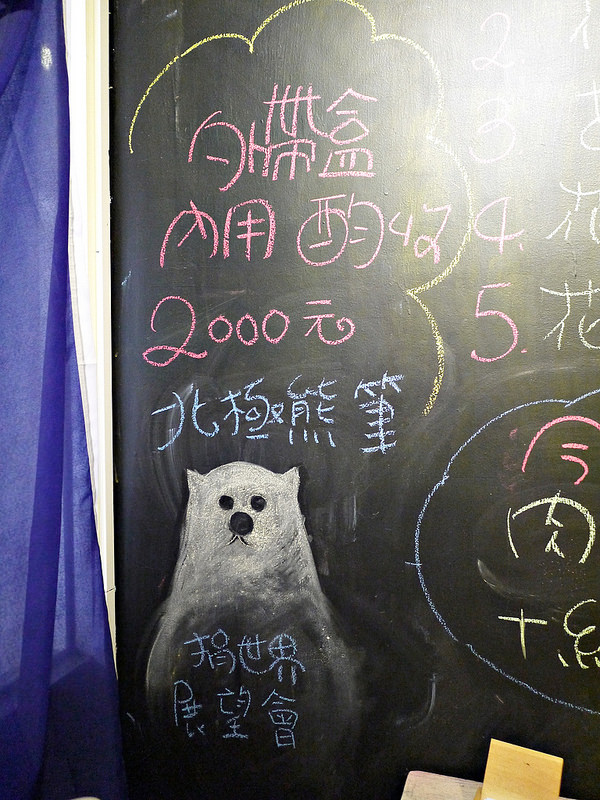 自攜盒
內用酌收
2000元
北極熊筆
捐世界
展望會
2.
3
4. 花
5. 花
今
肉
十